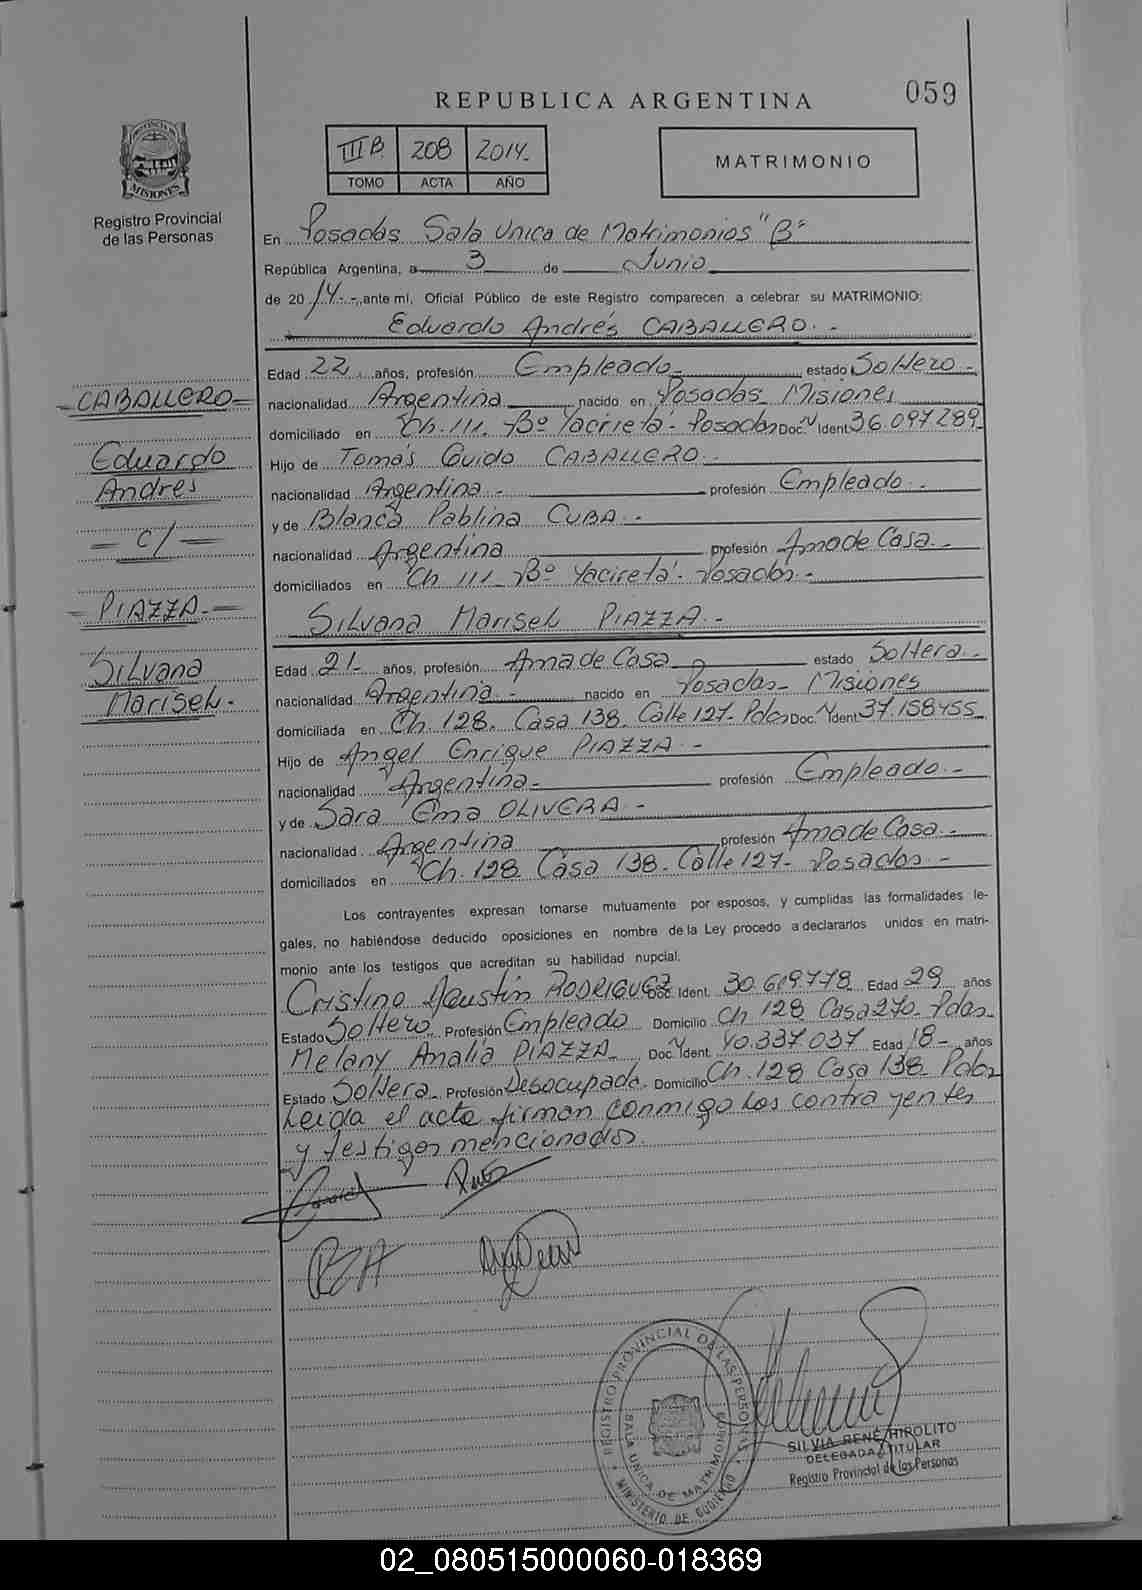 REPUBLICA ARGENTINA
059
III B. 208 2014.-
TOMO ACTA AÑO
MATRIMONIO
PROVINCIA DE
MISIONES
Registro Provincial
de las Personas
En Posadas Sala Unica de Matrimonios "B"
República Argentina, a 3 de Junio
de 2014.-, ante mí, Oficial Público de este Registro comparecen a celebrar su MATRIMONIO:
Eduardo Andrés CABALLERO.-
Edad 22 años, profesión Empleado estado Soltero-
nacionalidad Argentina nacido en Posadas Misiones
domiciliado en Ch. 111. Bº Yacireta- Posadas Doc. Ident. 36.097289
Hijo de Tomás Guido CABALLERO.-
nacionalidad Argentina.- profesión Empleado.-
y de Blanca Pablina CUBA.-
nacionalidad Argentina profesión Ama de Casa.-
domiciliados en Ch 111- Bº Yacireta'- Posadas-
Silvana Marisel PIAZZA.-
Edad 21- años, profesión Ama de Casa estado Soltera-
nacionalidad Argentina.- nacido en Posadas- Misiones
domiciliada en Ch. 128. Casa 138. Calle 127- Pdas Doc. Ident. 37.158455
Hijo de Angel Enrique PIAZZA.-
nacionalidad Argentina- profesión Empleado.-
y de Sara Ema OLIVERA.-
nacionalidad Argentina profesión Ama de Casa.-
domiciliados en Ch. 128 Casa 138. Calle 127- Posadas.-
Los contrayentes expresan tomarse mutuamente por esposos, y cumplidas las formalidades le-
gales, no habiéndose deducido oposiciones en nombre de la Ley procedo a declararlos unidos en matri-
monio ante los testigos que acreditan su habilidad nupcial.
Cristino Agustín RODRIGUEZ Doc. Ident. 30.619.778 Edad 29 años
Estado Soltero Profesión Empleado Domicilio Ch 128 Casa 270- Pdas-
Melany Analía PIAZZA Doc. Ident. 40.337.037 Edad 18- años
Estado Soltera Profesión Desocupada Domicilio Ch. 128 Casa 138 Pdas
Leida el acta firman conmigo los contrayentes
y testigos mencionados.
CABALLERO
Eduardo
Andres
c/
PIAZZA.-
Silvana
Marisel.-
REGISTRO PROVINCIAL DE LAS PERSONAS
SALA UNICA DE MATRIMONIOS
MINISTERIO DE GOBIERNO
SILVIA RENÉ HIPOLITO
DELEGADA TITULAR
Registro Provincial de las Personas
02_080515000060-018369